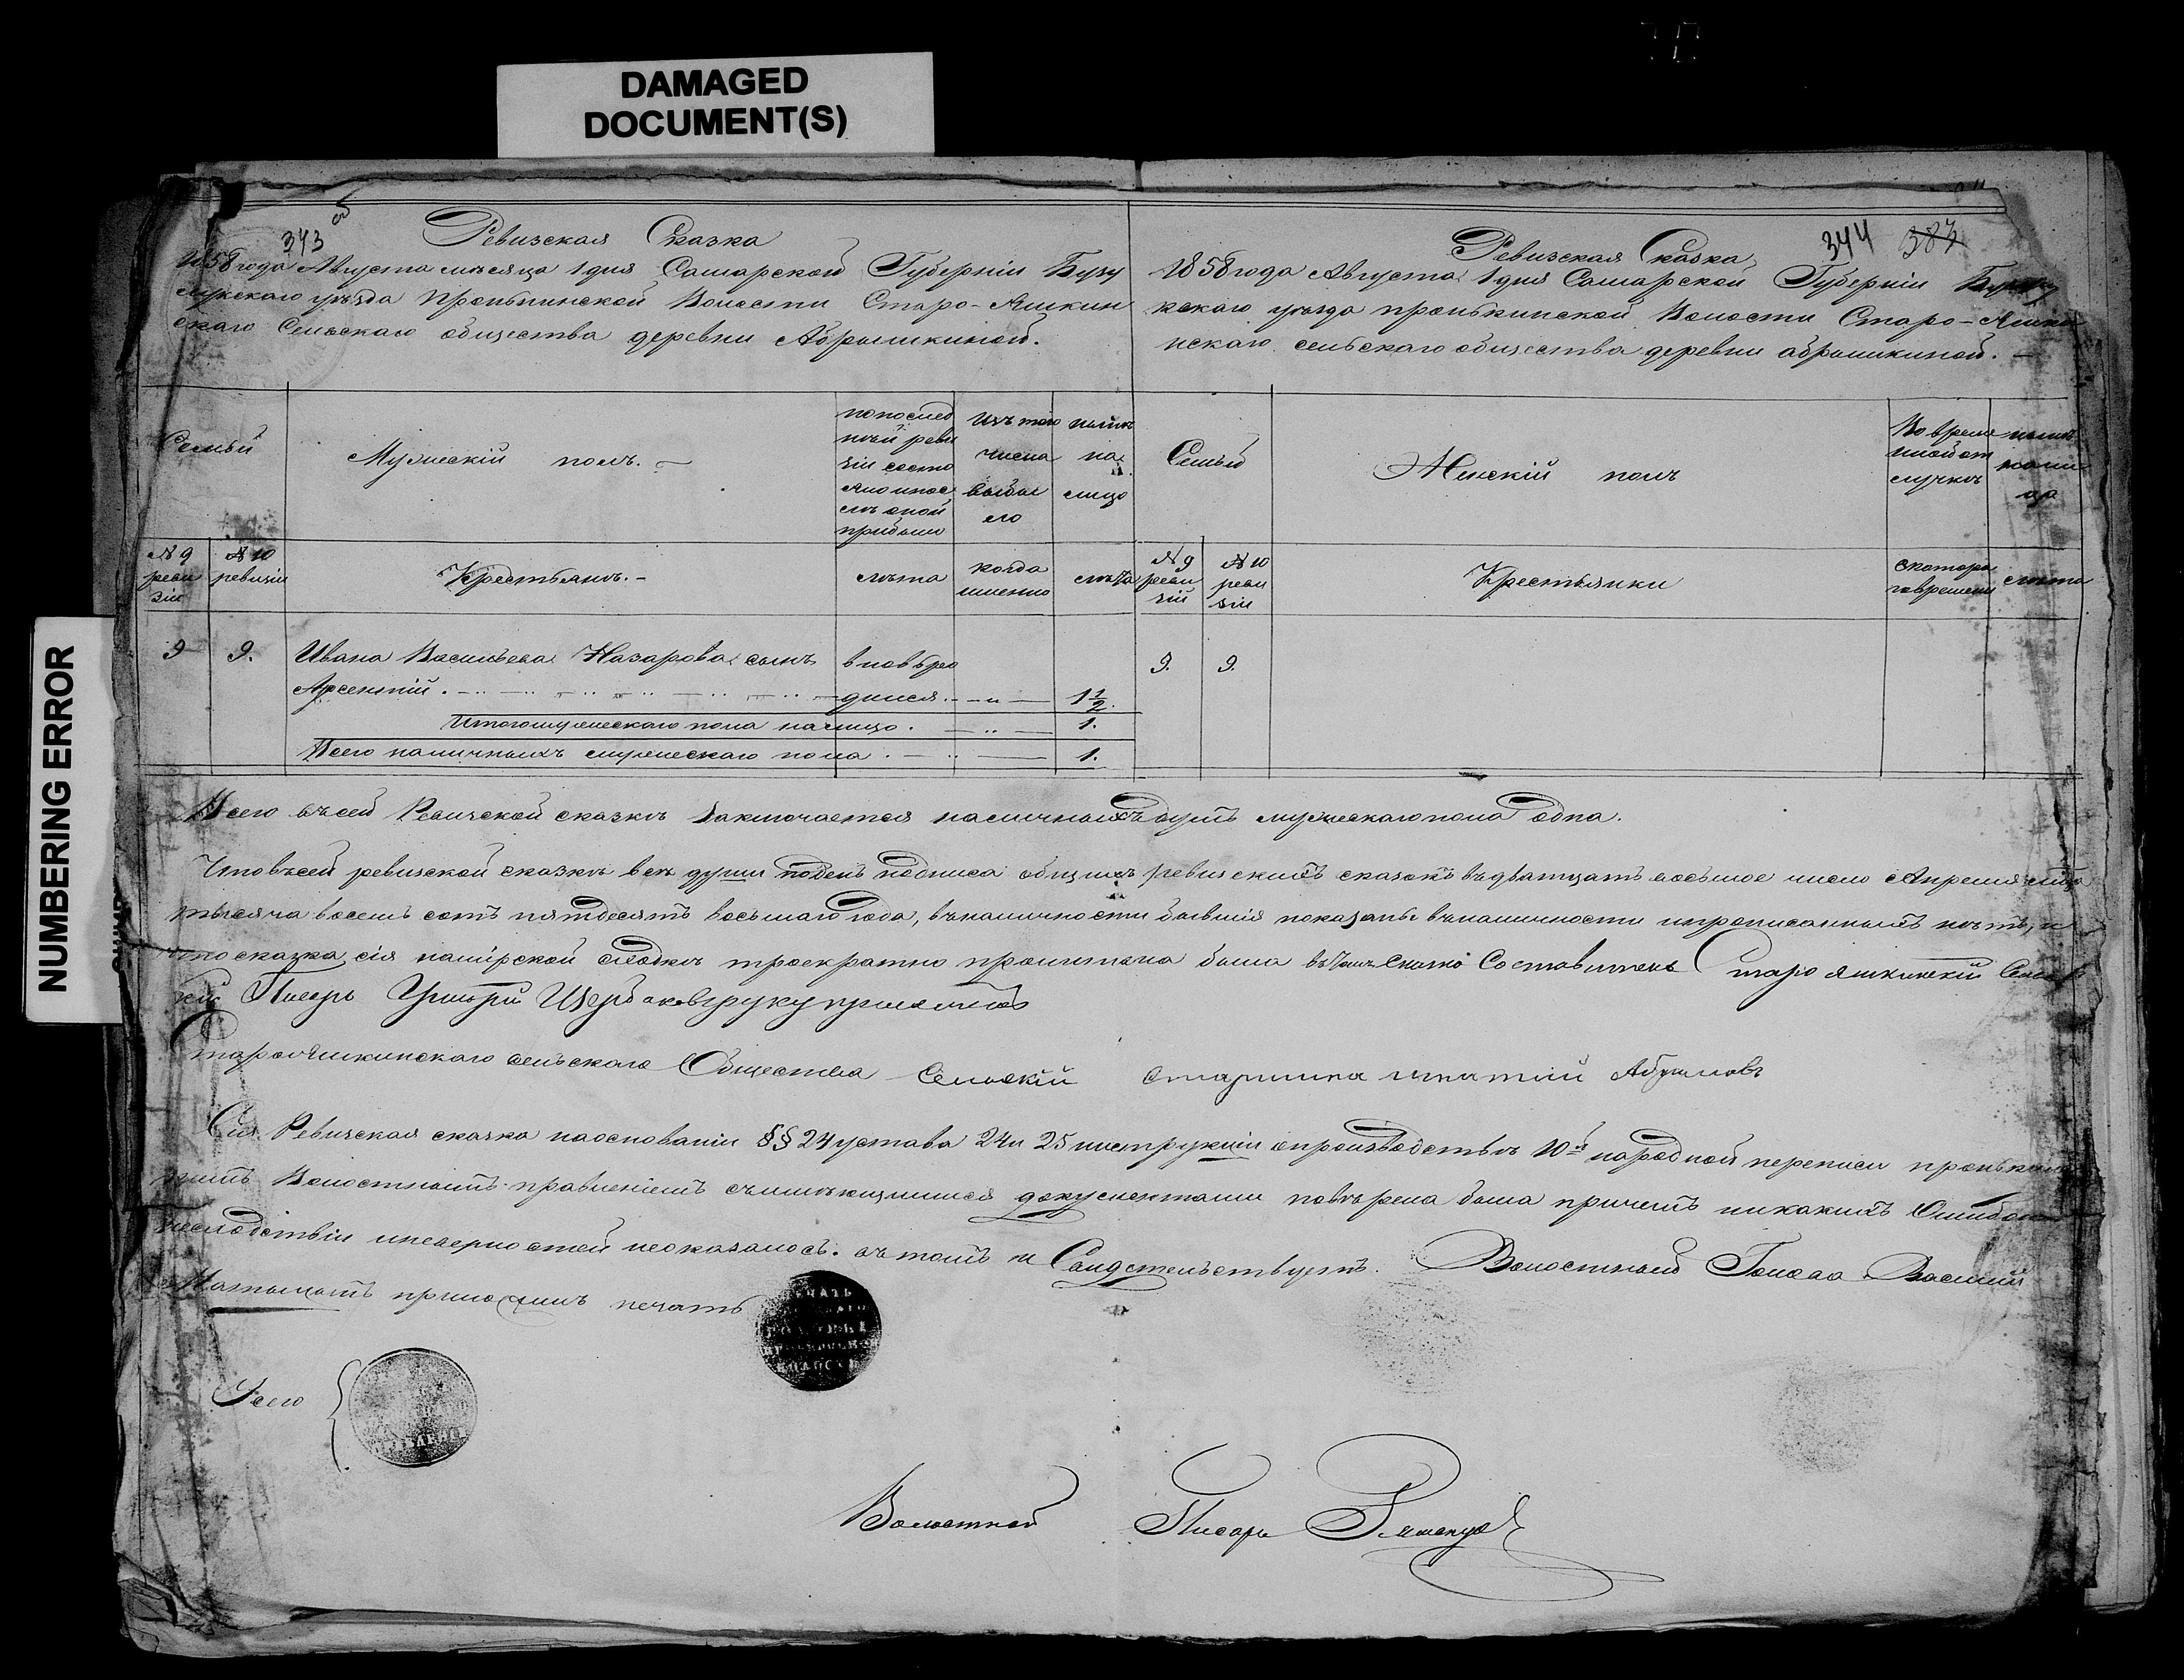 DAMAGED
DOCUMENT(S)
NUMBERING ERROR
343
Ревизская Сказка
1858 года Августа мѣсяца 1 дня Самарской Губерніи Бузу
лукскаго уѣзда Пронькинской Волости Старо-Яшкин
скаго Сельскаго общества деревни Абрышкиной.
344 383
Ревизская Сказка
1858 года Августа 1 дня Самарской Губерніи Бузулу
кскаго уѣзда пронькинской Волости Старо-Яшки
нскаго сельскаго общества деревни абрышкиной. —
Семьи
Мужескій полъ. —
по послед
ней реви
зіи состо
яло и пос
лѣ оной
прибыло
Изъ того
числа
выбы
ло
нынѣ
на
лицо
Семьи
Женскій полъ
Во време
нной от
лучкѣ
нынѣ
нали
цо
№ 9
реви
зіи
№ 10
ревизіи
Крестьянъ. —
лѣта
когда
именно
лѣта
№ 9
реви
зіи
№ 10
реви
зіи
Крестьянки
скотора
го времени
лѣта
9 9. Ивана Васильева Назарова сынъ вновьро
Арсентій. дился. 1 1/2.
9. 9.
Итого мужескаго пола налицо. 1.
Всего наличныхъ мужескаго пола. 1.
Всего въ сей Ревизской сказкѣ заключается наличныхъ душъ мужескаго пола одна.
Что въ сей ревизской сказкѣ всѣ души по день подписа общихъ ревизскихъ сказокъ въ дватцать восьмое число Апреля
тысяча восемь сотъ пятдесятъ восьмаго года, въ наличности бывшія показаны въ наличности и прописанныхъ нѣтъ, и
что сказка сія на мірской сходкѣ троекратно прочитана была въ томъ Сказки Составитель Старо яшкинскій Сельс
кій Писарь Щербаковъ руку приложилъ
Старояшкинскаго сельскаго Общества Сельскій старшина игнатій
Сія Ревизская сказка на основаніи §§ 24 устава 24 и 25 инструкціи о производствѣ 10й народной переписи пронькин
скимъ Волостнымъ правленіемъ съ имѣющимися документами повѣрена была причемъ никакихъ Ошибокъ
и неверностей неоказалось. въ томъ и Свидетельствуетъ. Волостной Голова Василій
приложилъ печать
Всего
Волостной Писарь